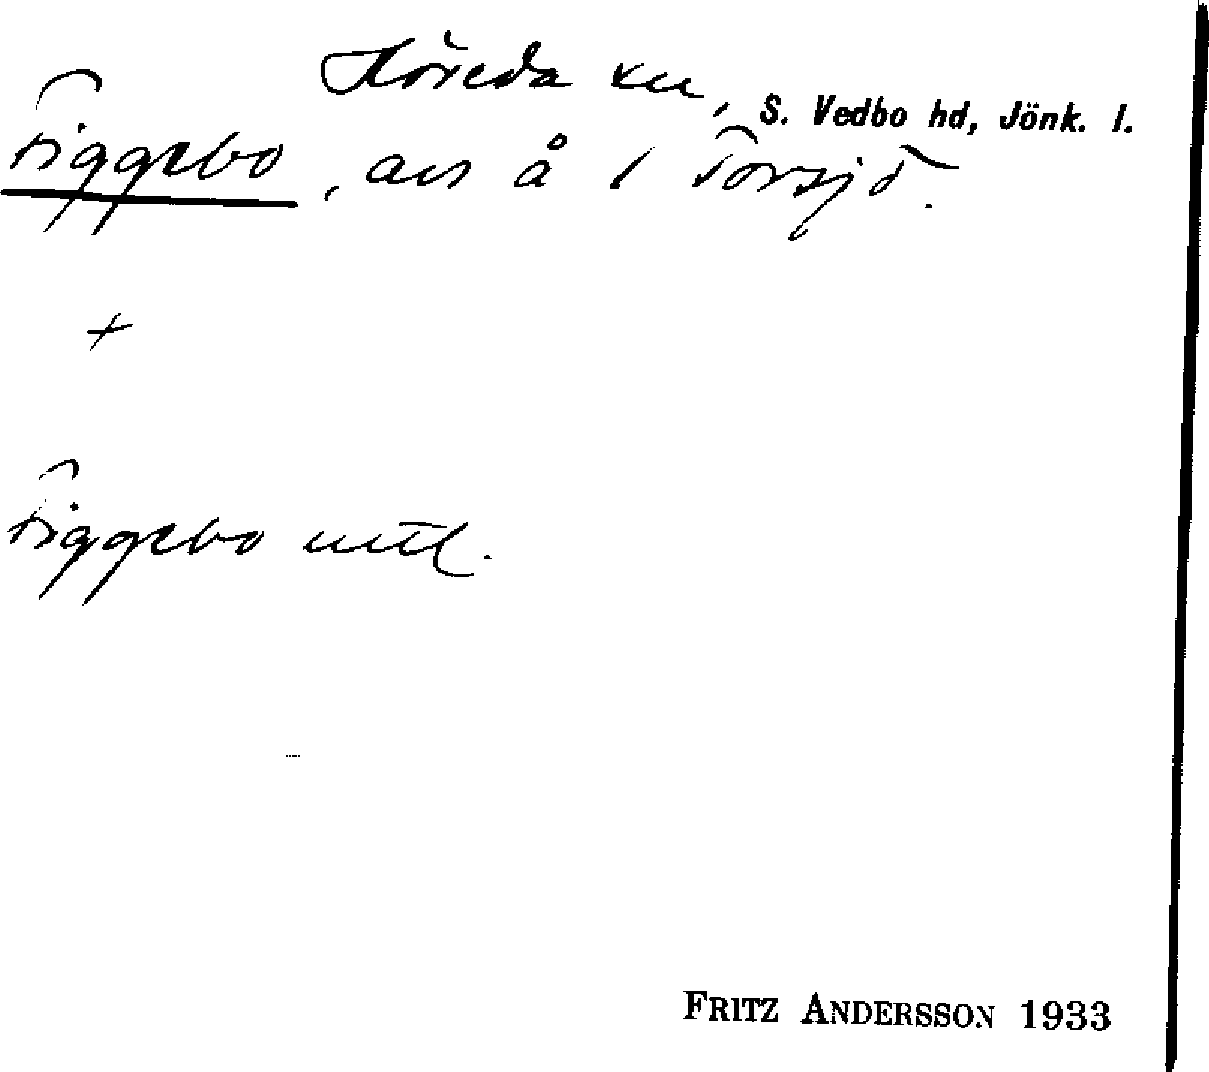 Höreda sn, S. Vedbo hd, Jönk. l.
Tiggebo, avs å / Torsjö.
+
Tiggebo uttl.
FRITZ ANDERSSON 1933